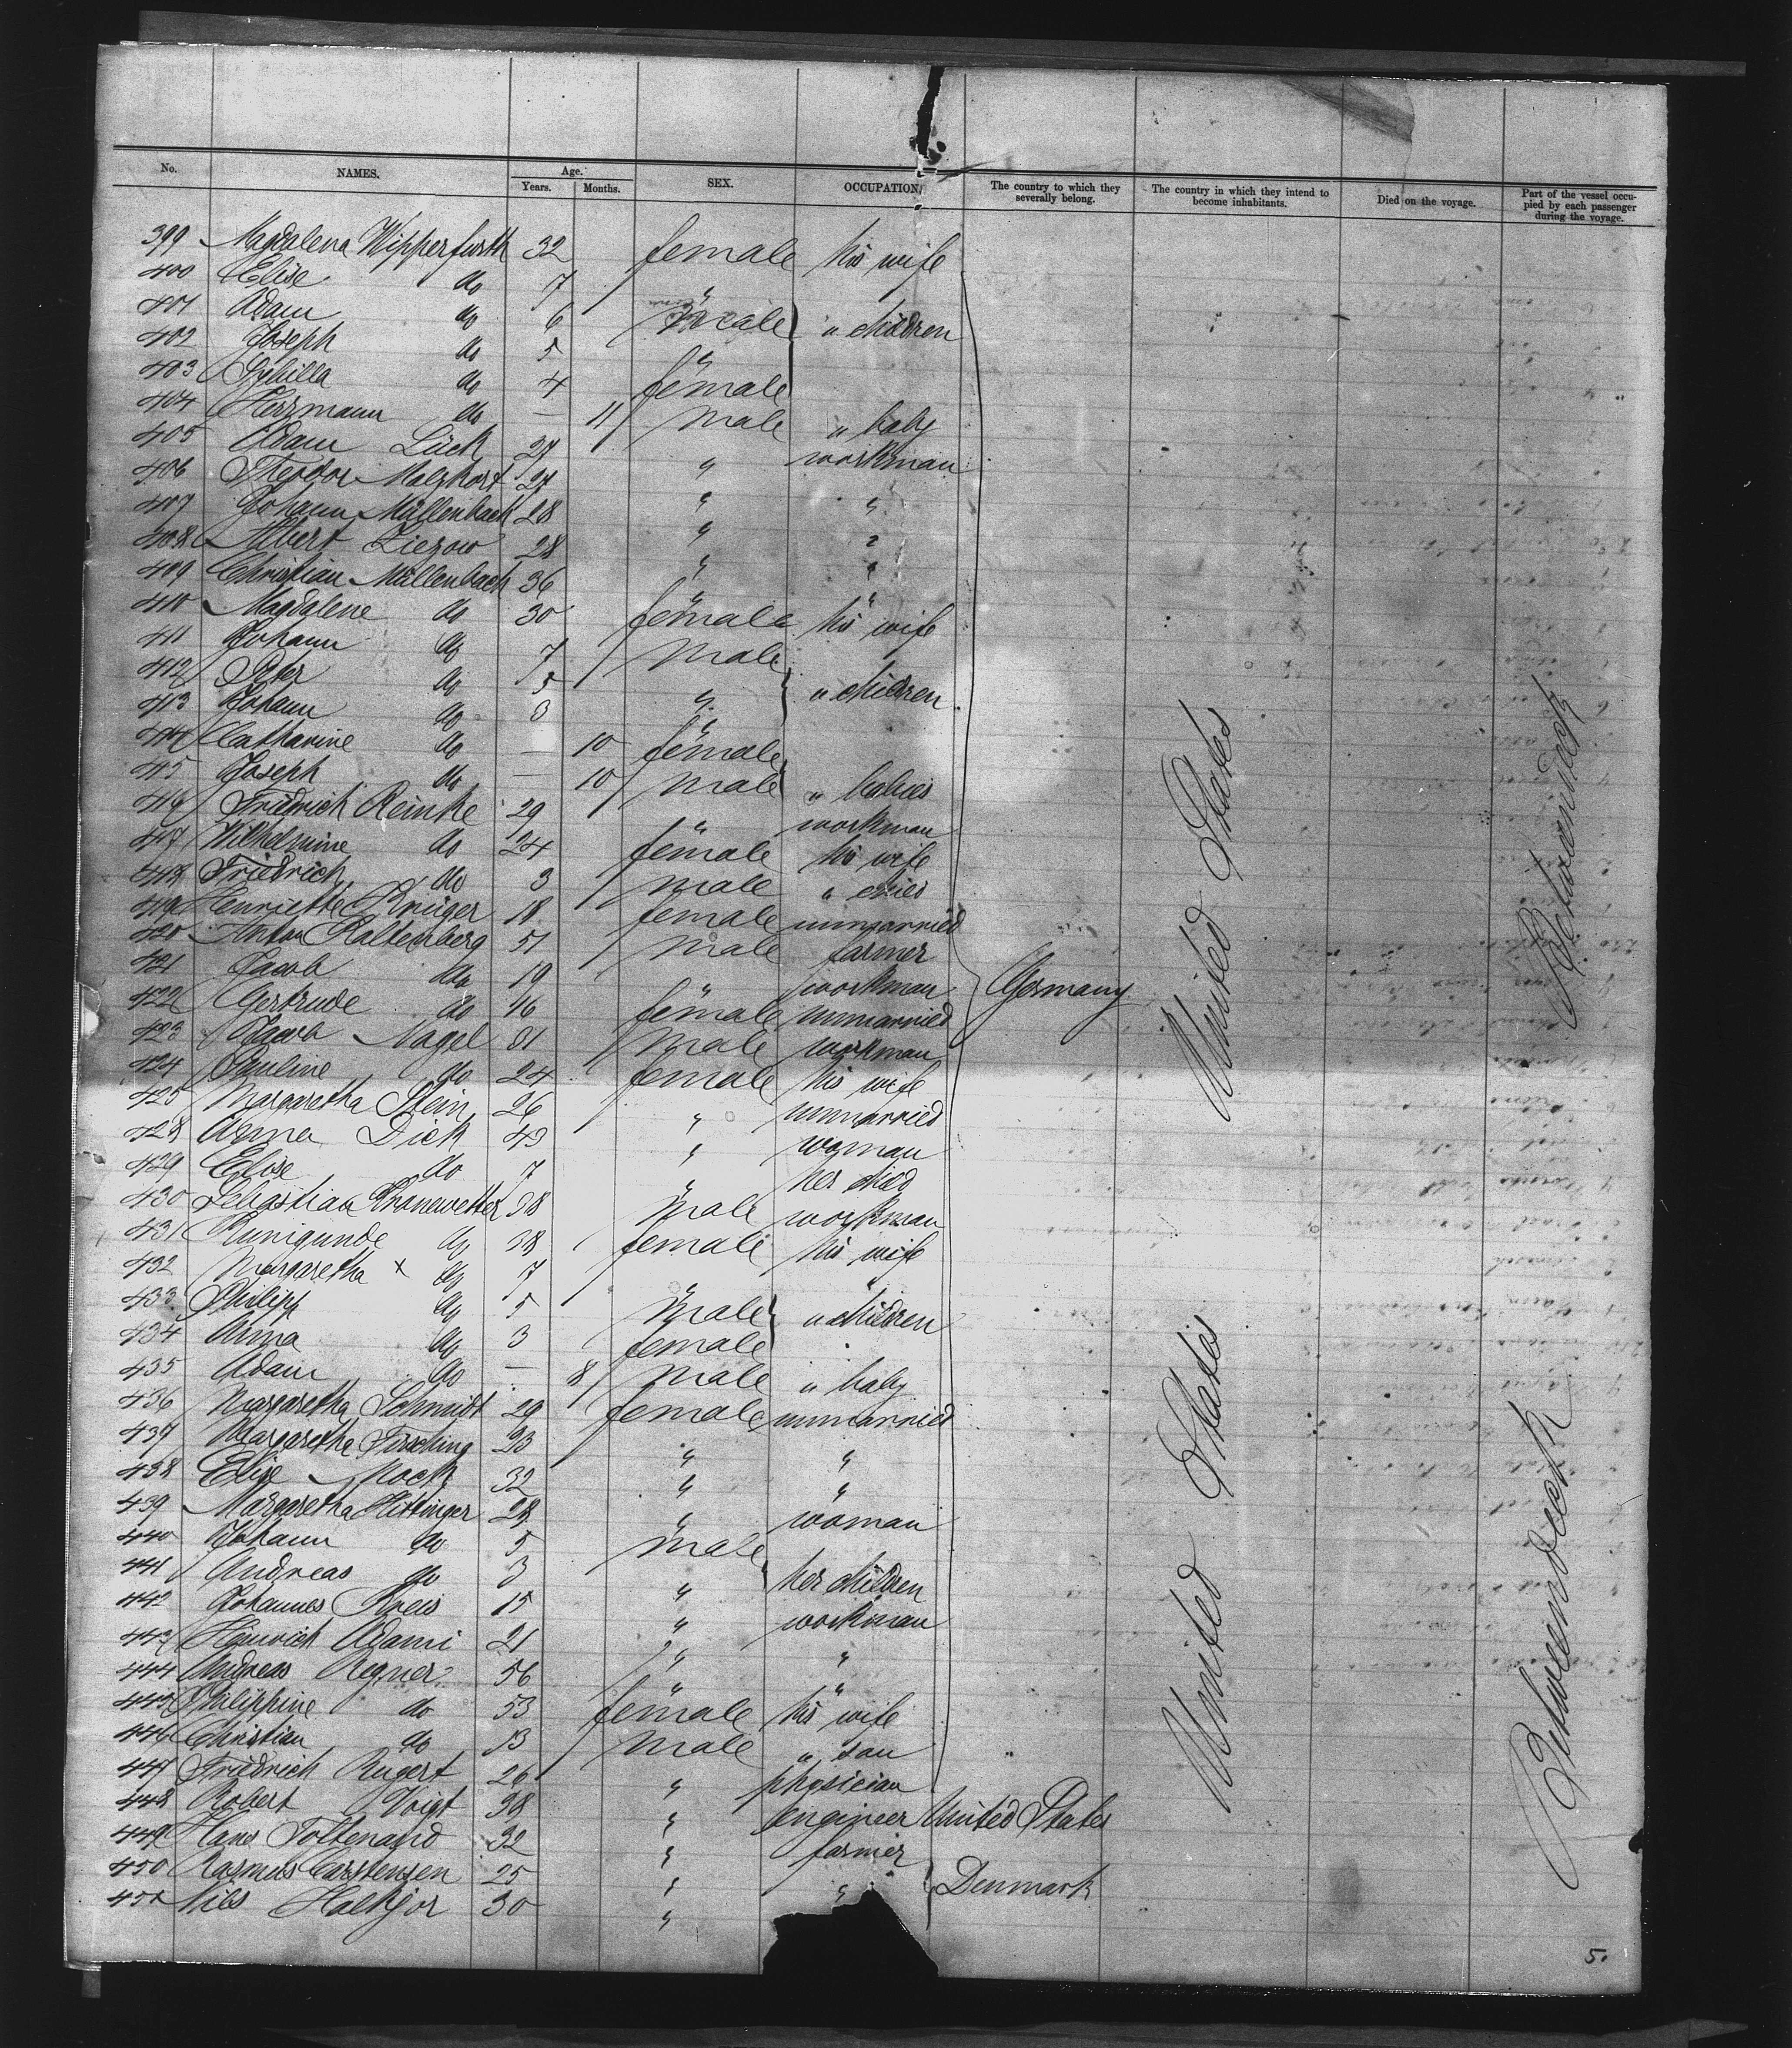 No. NAMES. Age. Years. Months. SEX. OCCUPATION. The country to which they severally belong. The country in which they intend to become inhabitants. Died on the voyage. Part of the vessel occupied by each passenger during the voyage.
399 Magdalena Wipperfurth 32 female his wife
400 Elise do 7 "
401 Adam do 6 male " children
402 Joseph do 5 "
403 Sybilla do 4 female
404 Herrmann do — 11 male " baby
405 Adam Lück 27 " workman
406 Theodor Malzkorf 27 " "
407 Johann Müllenbach 28 " "
408 Albert Liezow 28 " "
409 Christian Müllenbach 36 " "
410 Magdalene do 30 female his wife
411 Johann do 7 male
412 Peter do 5 " " children
413 Johann do 3 "
414 Catharine do — 10 female
415 Joseph do — 10 male " babies
416 Friedrich Reinke 29 " workman
417 Wilhelmine do 24 female his wife
418 Friedrich do 3 male " child
419 Henriette Krüger 18 female unmarried
420 Anton Kaltenberg 51 male farmer
421 Jacob do 19 " workman Germany
422 Gertrude do 16 female unmarried
423 Jacob Nagel 31 male workman
424 Pauline do 24 female his wife
425 Margaretha Stein 26 " unmarried
428 Anna Dick 43 " woman
429 Elise do 7 " her child
430 Sebastian Kronewetter 38 male workman
431 Kunigunde do 38 female his wife
432 Margaretha x do 7 "
433 Philipp do 5 male " children
434 Anna do 3 female
435 Adam do — 8 male " baby
436 Margaretha Schmidt 29 female unmarried
437 Margaretha 23 " "
438 Elise Mock 32 " "
439 Margaretha Hittinger 28 " woman
440 Johann do 5 male
441 Andreas do 3 " her children
442 Johannes Kreis 15 " workman
443 Heinrich Adami 21 " "
444 Andreas Regner 56 " "
445 Philippine do 53 female his wife
446 Christian do 13 male " son
447 Friedrich Rugert 26 " physician
448 Robert Voigt 38 " engineer United States
449 Hans 32 " farmer
450 Rasmus Carstensen 25 " " Denmark
451 Nils Halkjor 30 "
United States
United States
Betweendeck
Betweendeck
5.